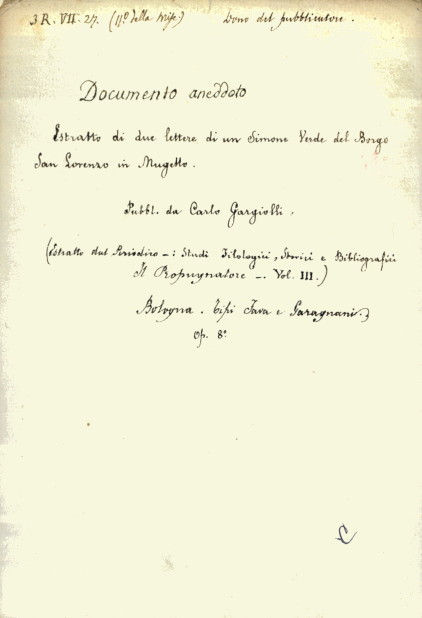 3. R. VII. 27. (11º della Misc.) Dono del pubblicatore.
Documento aneddoto
Estratto di due lettere di un Simone Verde del Borgo
San Lorenzo in Mugello.
Pubbl. da Carlo Gargiolli,
(Estratto dal Periodico -: Studi Filologici, Storici e Bibliografici
Il Propugnatore -. Vol. III.)
Bologna. Tipi Fava e Garagnani.)
Op. 8º